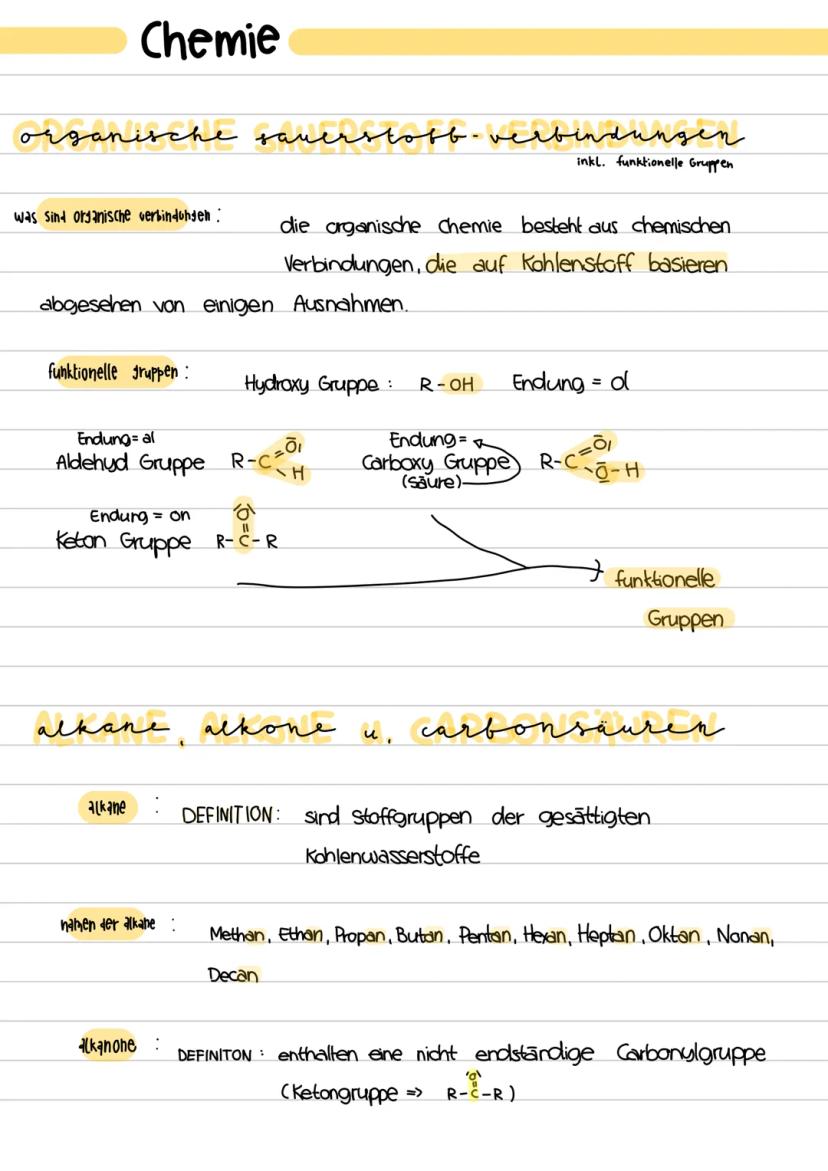 Chemie
organische sauerstoff-verbindungen
inkl. funktionelle Gruppen
was sind organische verbindungen :
die organische Chemie besteht aus chemischen
Verbindungen, die auf Kohlenstoff basieren
abgesehen von einigen Ausnahmen.
funktionelle gruppen :
Hydroxy Gruppe : R-OH Endung = ol
Endung= al
Aldehyd Gruppe R-C=O H
Endung=
Carboxy Gruppe R-C=O O-H
(säure)
Endung = on
Keton Gruppe R-C-R
O
funktionelle
Gruppen
alkane, alkone u. carbonsäuren
alkane :
DEFINITION: sind Stoffgruppen der gesättigten
Kohlenwasserstoffe
namen der alkane :
Methan, Ethan, Propan, Butan, Pentan, Hexan, Heptan, Oktan, Nonan,
Decan
alkanone :
DEFINITON : enthalten eine nicht endständige Carbonylgruppe
(Ketongruppe => R-C-R)
O